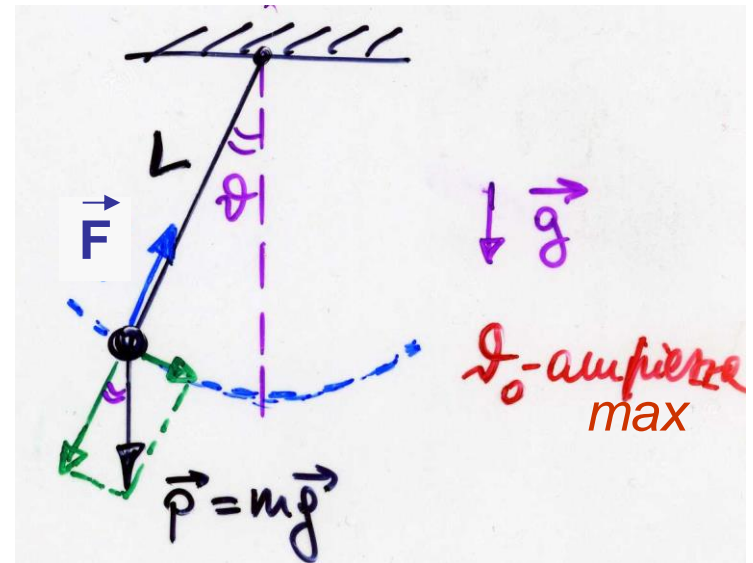 L
ϑ
F⃗
g⃗
ϑ₀-ampiezza
max
p⃗ = mg⃗